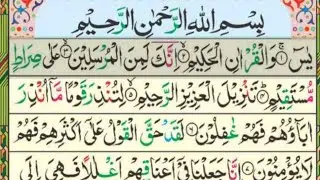 بِسْمِ اللهِ الرَّحْمٰنِ الرَّحِيْمِ
يٰسٓ ۝١ وَالْقُرْاٰنِ الْحَكِيْمِ ۝٢ اِنَّكَ لَمِنَ الْمُرْسَلِيْنَ ۝٣ عَلٰى صِرَاطٍ
مُّسْتَقِيْمٍ ۝٤ تَنْزِيْلَ الْعَزِيْزِ الرَّحِيْمِ ۝٥ لِتُنْذِرَ قَوْمًا مَّاۤ اُنْذِرَ
اٰبَآؤُهُمْ فَهُمْ غٰفِلُوْنَ ۝٦ لَقَدْ حَقَّ الْقَوْلُ عَلٰۤى اَكْثَرِهِمْ فَهُمْ
لَا يُؤْمِنُوْنَ ۝٧ اِنَّا جَعَلْنَا فِيْۤ اَعْنَاقِهِمْ اَغْلٰلًا فَهِيَ اِلَى